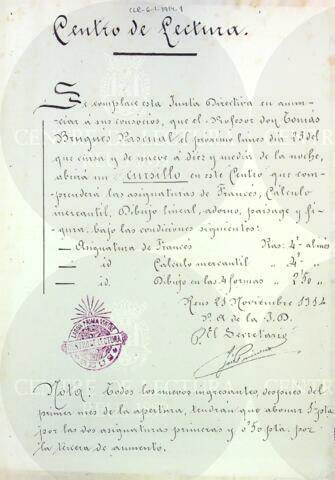 CLR-6-1-1914.1
Centro de Lectura.
Se complace esta Junta Directiva en anun-
ciar á sus consocios, que el Profesor don Tomás
Brugués Pascual el próximo lunes dia 23 del
que cursa y de nueve á diez y media de la noche,
abrirá un cursillo en este Centro que com-
prenderá las asignaturas de Francés, Cálculo
mercantil, Dibujo lineal, adorno, paisage y fi-
gura, bajo las condiciones siguientes:
— Asignatura de Francés Ptas: 4'- al mes
— id. Cálculo mercantil " 4'- "
— id. Dibujo en las 4 formas " 2'50 "
Reus 21 Noviembre 1914
P. A. de la J. D.
El Secretario
CENTRO DE LECTURA
REUS
Nota: Todos los nuevos ingresantes, despues del
primer mes de la apertura, tendrán que abonar 1 pta
por las dos asignaturas primeras y 0'50 pta. por
la tercera de aumento.